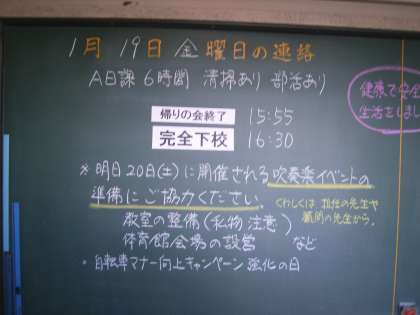 1月19日 金曜日の連絡
A日課 6時間 清掃あり 部活あり
健康で安全
生活をしまし
帰りの会終了 15:55
完全下校 16:30
※明日20日(土)に開催される吹奏楽イベントの
準備にご協力ください。
くわしくは担任の先生や
顧問の先生から。
教室の整備(私物注意)
体育館会場の設営 など
・自転車マナー向上キャンペーン強化の日